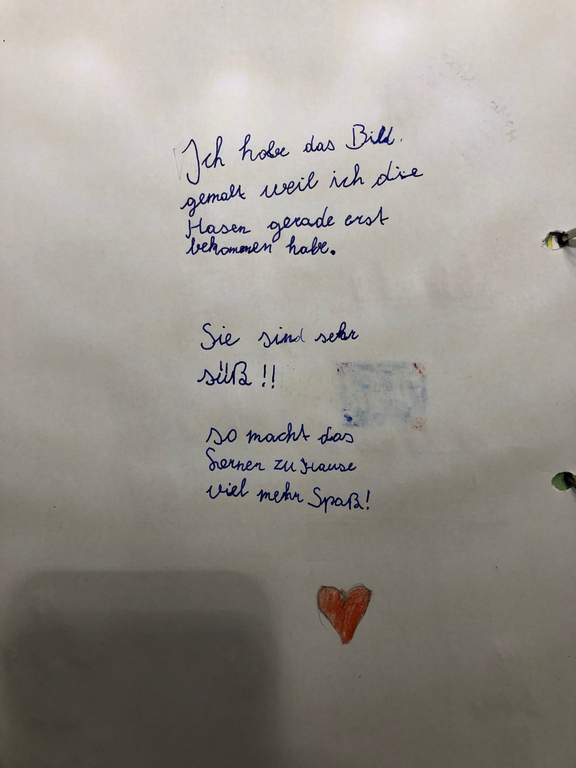 Ich habe das Bild.
gemalt weil ich die
Hasen gerade erst
bekommen habe.
Sie sind sehr
süß!!
so macht das
Lernen zu Hause
viel mehr Spaß!